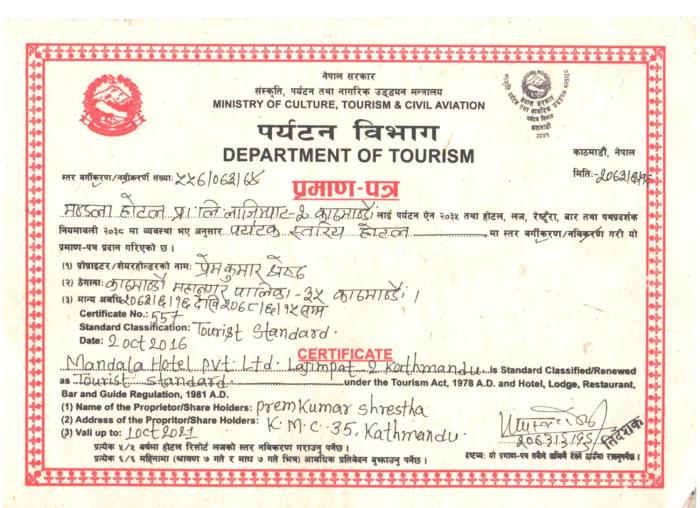 नेपाल सरकार
संस्कृति, पर्यटन तथा नागरिक उड्डयन मन्त्रालय
MINISTRY OF CULTURE, TOURISM & CIVIL AVIATION
पर्यटन विभाग
DEPARTMENT OF TOURISM
काठमाडौं, नेपाल
स्तर वर्गीकरण/नवीकरण संख्या:
मिति:-
प्रमाण-पत्र
मण्डला होटल प्रा लि लाजिम्पाट-२ काठमाण्डौं लाई पर्यटन ऐन २०३५ तथा होटल, लज, रेष्टुँरा, बार तथा पथप्रदर्शक
नियमावली २०३८ मा व्यवस्था भए अनुसार पर्यटक स्तरिय होटल मा स्तर वर्गिकरण/नविकरण गरी यो
प्रमाण-पत्र प्रदान गरिएको छ ।
(१) प्रोप्राइटर/शेयरहोल्डरको नाम: प्रेम कुमार श्रेष्ठ
(२) ठेगाना: काठमाण्डौं महानगर पालिका-३५ काठमाण्डौं ।
(३) मान्य अवधि:
Certificate No.: 557
Standard Classification: Tourist Standard.
Date: 2 oct 2016
CERTIFICATE
Mandala Hotel pvt. Ltd. Lajimpat-2 Kathmandu. is Standard Classified/Renewed
as Tourist standard under the Tourism Act, 1978 A.D. and Hotel, Lodge, Restaurant,
Bar and Guide Regulation, 1981 A.D.
(1) Name of the Proprietor/Share Holders: prem Kumar shrestha
(2) Address of the Propritor/Share Holders: K.M.C. 35, Kathmandu.
(3) Vali up to: 1 oct 2021
निर्देशक
प्रत्येक ५/५ वर्षमा होटल रिसोर्ट लजको स्तर नविकरण गराउनु पर्नेछ ।
प्रत्येक ६/६ महिनामा (श्रावण ७ गते र माघ ७ गते भित्र) आवधिक प्रतिवेदन बुझाउनु पर्नेछ ।
द्रष्टव्य: यो प्रमाण-पत्र सबैले सजिलै देख्ने ठाउँमा राख्नुपर्नेछ ।